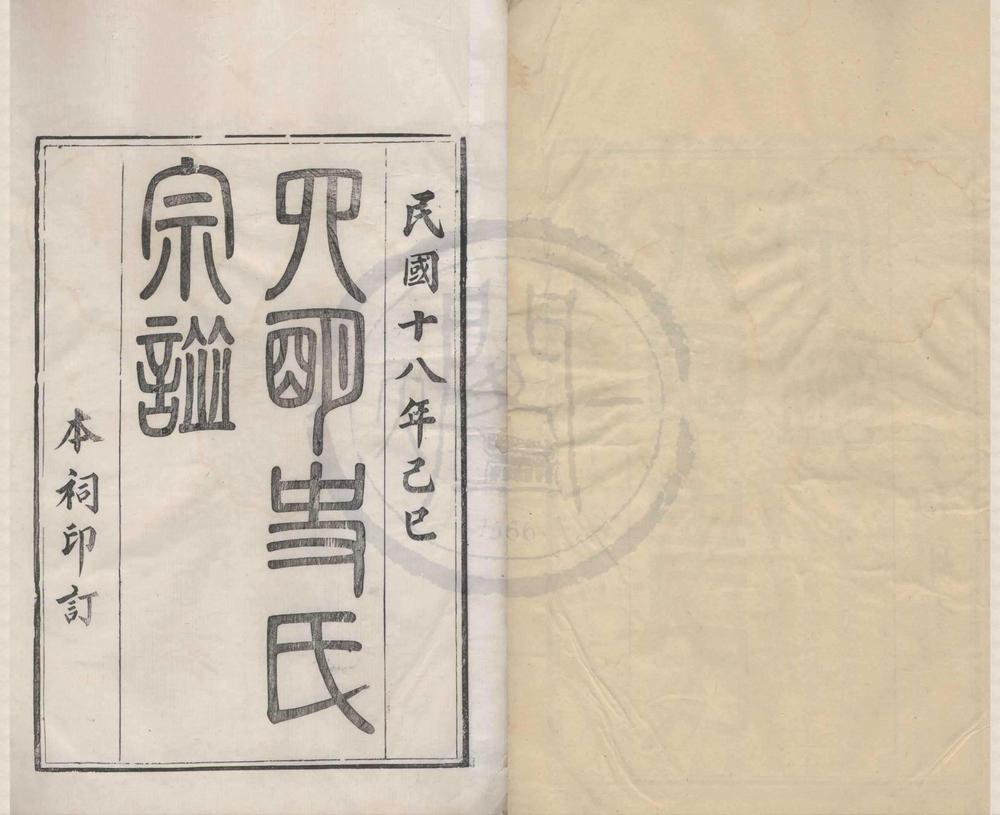 民國十八年己巳
四明史氏
宗譜
本祠印訂
1566